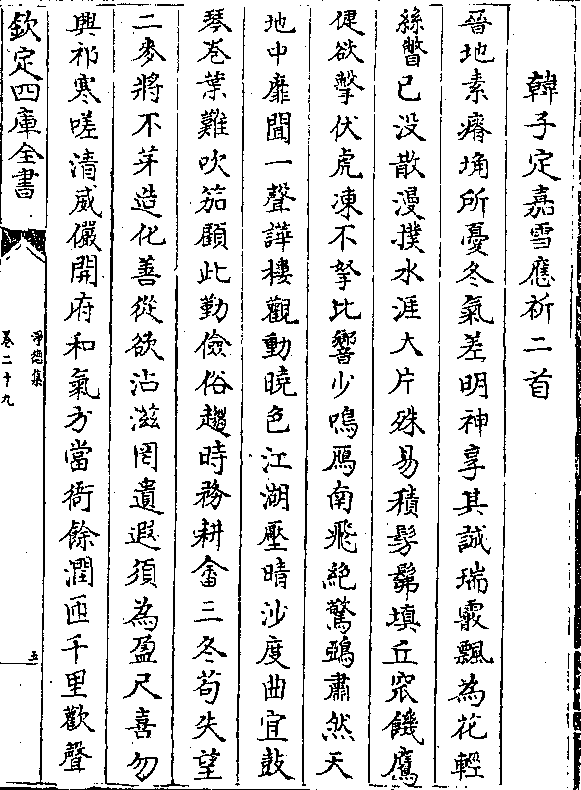 韓子定嘉雪應祈二首
晉地素瘠埆所憂冬氣差明神享其誠瑞霰飄為花輕
絲瞥已没散漫撲水涯大片殊易積髣髴填丘窊饑鷹
便欲擊伏虎凍不拏比響少鳴鴈南飛絶驚鵶肅然天
地中靡間一聲譁樓觀動曉色江湖壓晴沙度曲宜鼓
琴卷葉難吹笳顧此勤儉俗趨時務耕畬三冬苟失望
二麥將不芽造化善從欲沾滋罔遺遐須為盈尺喜勿
興祁寒嗟清威儼開府和氣方當衙餘潤匝千里歡聲
欽定四庫全書
淨德集
卷二十九
五